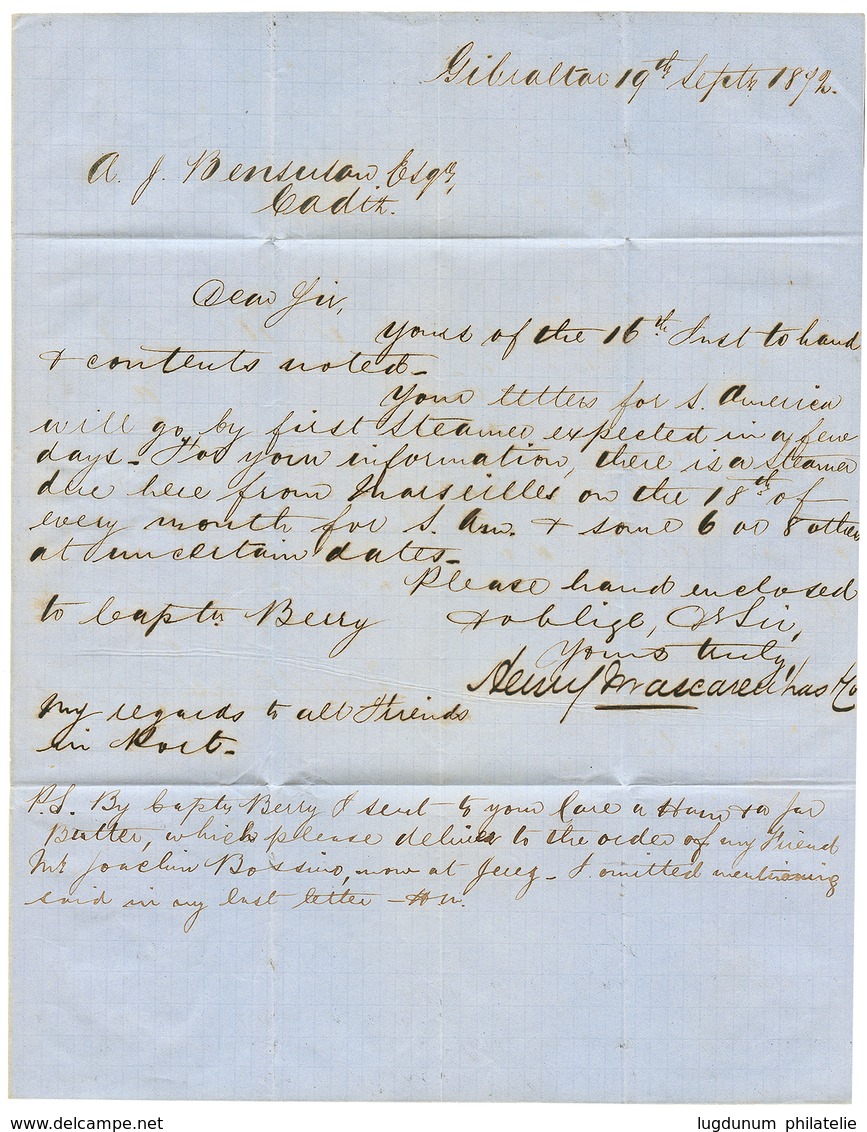 Gibraltar 19th Septr. 1872.
A. J. Bensusan Esqr,
Cadiz.
Dear Sir,
Yours of the 16th Inst to hand
& contents noted_
Your letters for S. America
will go by first Steamer expected in a few
days_ For your information, there is a steamer
due here from Marseilles on the 18th of
every month for S. Am. & some 6 or 8 others
at uncertain dates_
Please hand enclosed
to Captn Berry & oblige, Dr Sir,
Yours truly,
Henry Mascarenhas
My regards to all Friends
in Port_
P.S. By Captn Berry I sent to your Care a Ham & a Jar
Butter, which please deliver to the order of my Friend
Mr Joachin Bossino, now at Jerez_ I omitted mentioning
said in my last letter_ H M.
www.delcampe.net
lugdunum philatelie